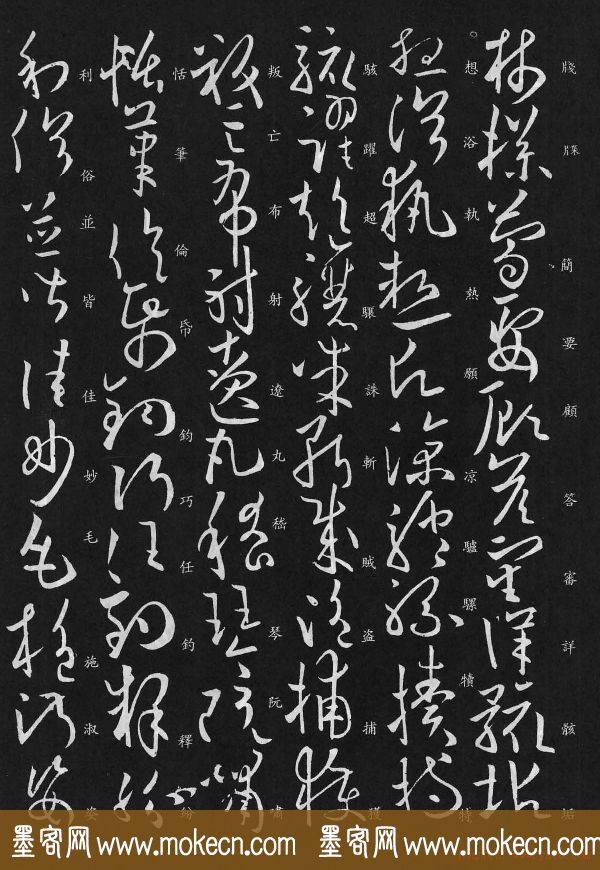 牋牒簡要顧答審詳骸垢
想浴執熱願凉驢騾犢特
駭躍超驤誅斬賊盜捕獲
叛亡布射遼丸嵇琴阮嘯
恬筆倫帋鈞巧任釣釋紛
利俗並皆佳妙毛施淑姿
墨客网 www.mokecn.com 墨客网 www.mokecn.com